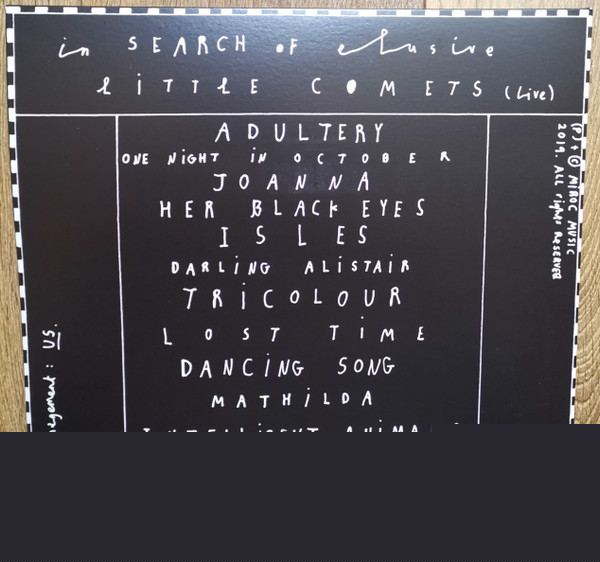 in SEARCH OF elusive
LiTTLE COMETS (Live)
ADULTERY
ONE NiGHT iN OCTOBER
JOANNA
HER BLACK EYES
ISLES
DARLiNG ALiSTAiR
TRiCOLOUR
LOST TiME
DANCiNG SONG
MATHiLDA
(P) + © MIROC MUSIC
2019. All rights RESERVED
: US.